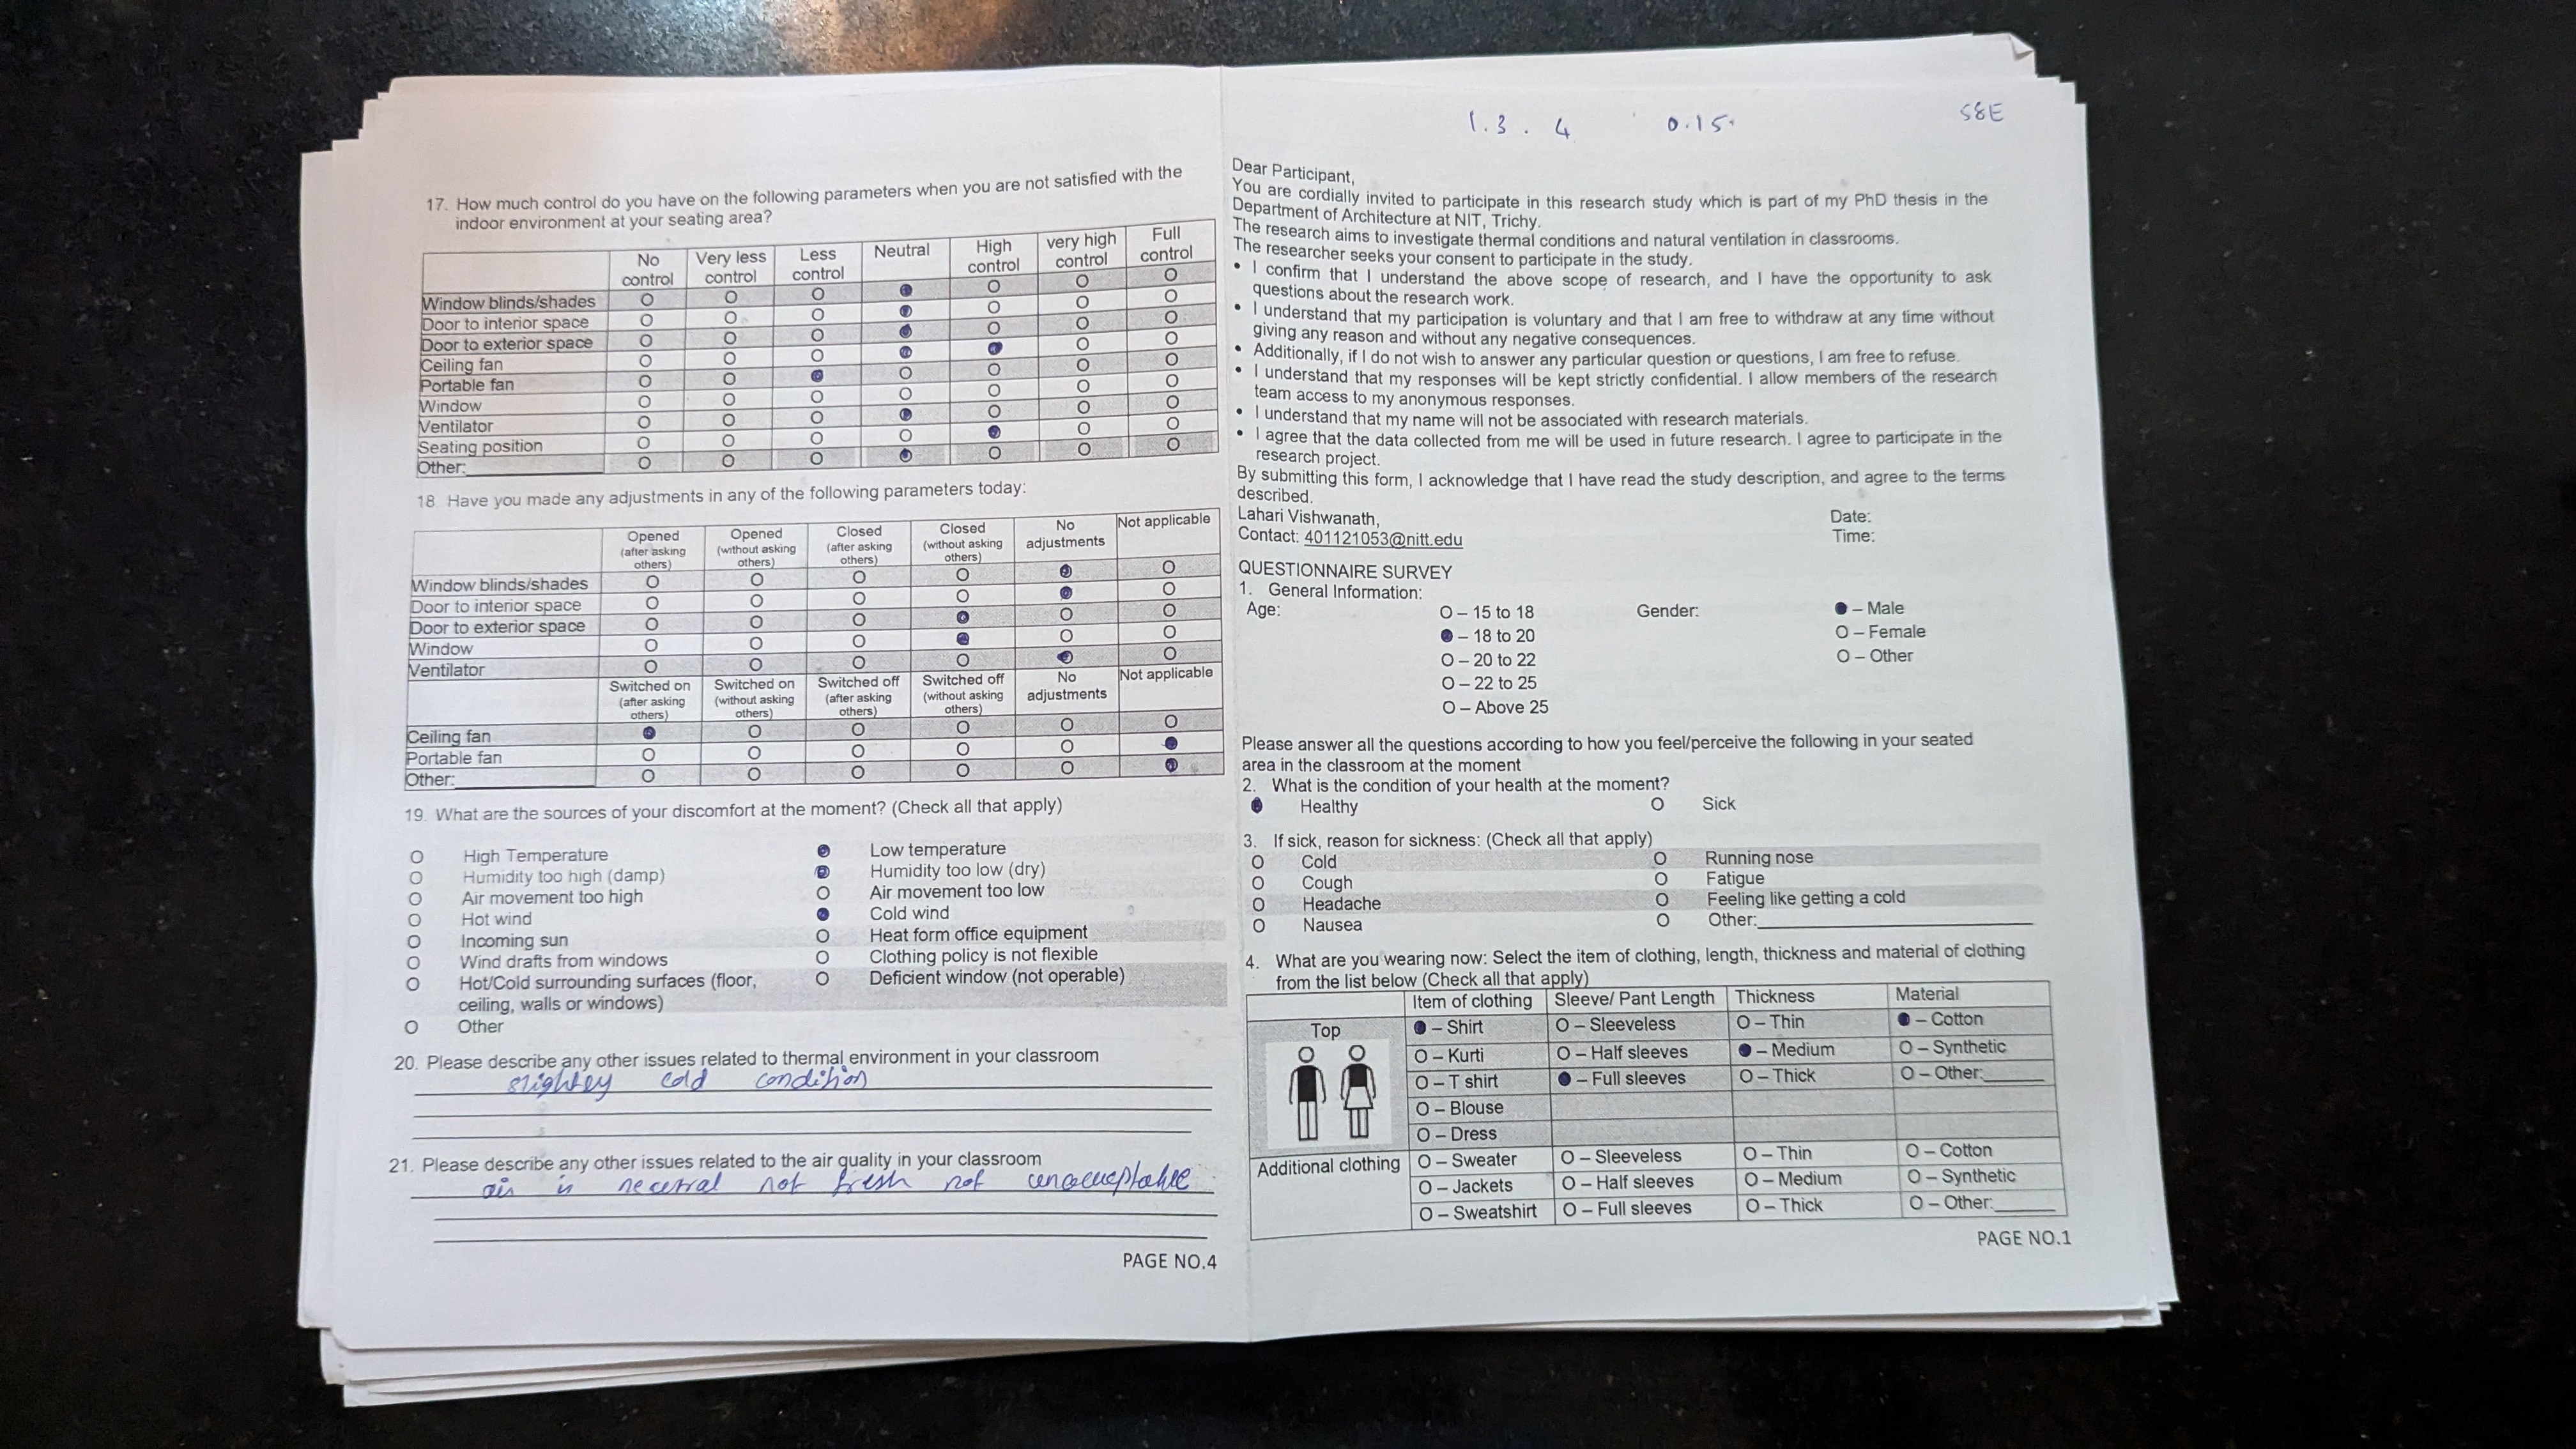 17. How much control do you have on the following parameters when you are not satisfied with the
indoor environment at your seating area?
No control Very less control Less control Neutral High control very high control Full control
Window blinds/shades O O O ● O O O
Door to interior space O O O ● O O O
Door to exterior space O O O ● O O O
Ceiling fan O O O ● ● O O
Portable fan O O ● O O O O
Window O O O O O O O
Ventilator O O O ● O O O
Seating position O O O O ● O O
Other:________ O O O ● O O O
18 Have you made any adjustments in any of the following parameters today:
Opened (after asking others) Opened (without asking others) Closed (after asking others) Closed (without asking others) No adjustments Not applicable
Window blinds/shades O O O O ● O
Door to interior space O O O O ● O
Door to exterior space O O O ● O O
Window O O O ● O O
Ventilator O O O O ● O
Switched on (after asking others) Switched on (without asking others) Switched off (after asking others) Switched off (without asking others) No adjustments Not applicable
Ceiling fan ● O O O O O
Portable fan O O O O O ●
Other:________ O O O O O ●
19. What are the sources of your discomfort at the moment? (Check all that apply)
O High Temperature ● Low temperature
O Humidity too high (damp) ● Humidity too low (dry)
O Air movement too high O Air movement too low
O Hot wind ● Cold wind
O Incoming sun O Heat form office equipment
O Wind drafts from windows O Clothing policy is not flexible
O Hot/Cold surrounding surfaces (floor, O Deficient window (not operable)
ceiling, walls or windows)
O Other
20. Please describe any other issues related to thermal environment in your classroom
slightly cold condition
21. Please describe any other issues related to the air quality in your classroom
air is neutral not fresh not unacceptable
PAGE NO.4
1.3.4 0.15 S8E
Dear Participant,
You are cordially invited to participate in this research study which is part of my PhD thesis in the
Department of Architecture at NIT, Trichy.
The research aims to investigate thermal conditions and natural ventilation in classrooms.
The researcher seeks your consent to participate in the study.
• I confirm that I understand the above scope of research, and I have the opportunity to ask
questions about the research work.
• I understand that my participation is voluntary and that I am free to withdraw at any time without
giving any reason and without any negative consequences.
• Additionally, if I do not wish to answer any particular question or questions, I am free to refuse.
• I understand that my responses will be kept strictly confidential. I allow members of the research
team access to my anonymous responses.
• I understand that my name will not be associated with research materials.
• I agree that the data collected from me will be used in future research. I agree to participate in the
research project.
By submitting this form, I acknowledge that I have read the study description, and agree to the terms
described.
Lahari Vishwanath, Date:
Contact: 401121053@nitt.edu Time:
QUESTIONNAIRE SURVEY
1. General Information:
Age: O – 15 to 18 Gender: ● – Male
● – 18 to 20 O – Female
O – 20 to 22 O – Other
O – 22 to 25
O – Above 25
Please answer all the questions according to how you feel/perceive the following in your seated
area in the classroom at the moment
2. What is the condition of your health at the moment?
● Healthy O Sick
3. If sick, reason for sickness: (Check all that apply)
O Cold O Running nose
O Cough O Fatigue
O Headache O Feeling like getting a cold
O Nausea O Other:________
4. What are you wearing now: Select the item of clothing, length, thickness and material of clothing
from the list below (Check all that apply)
Item of clothing Sleeve/ Pant Length Thickness Material
Top ● – Shirt O – Sleeveless O – Thin ● – Cotton
O – Kurti O – Half sleeves ● – Medium O – Synthetic
O – T shirt ● – Full sleeves O – Thick O – Other:______
O – Blouse
O – Dress
Additional clothing O – Sweater O – Sleeveless O – Thin O – Cotton
O – Jackets O – Half sleeves O – Medium O – Synthetic
O – Sweatshirt O – Full sleeves O – Thick O – Other:______
PAGE NO.1